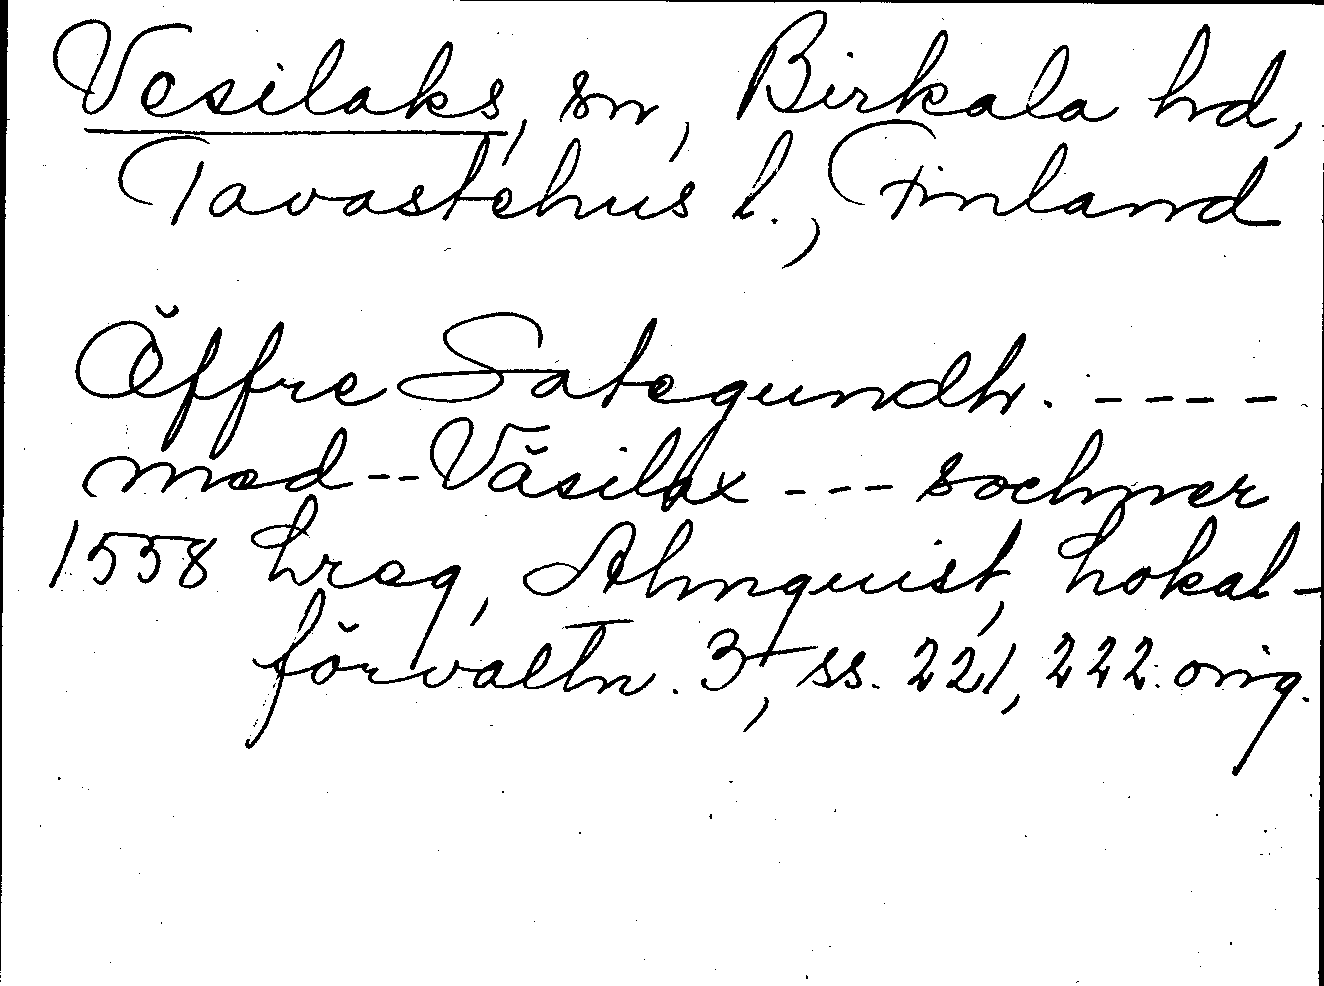 Vesilaks, sn, Birkala hd,
Tavastehus l., Finland
Öffre Sategundh. ----
med -- Väsilax --- sochner
1558 hreg, Almquist, Lokal-
förvaltn. 3, ss. 221, 222. orig.